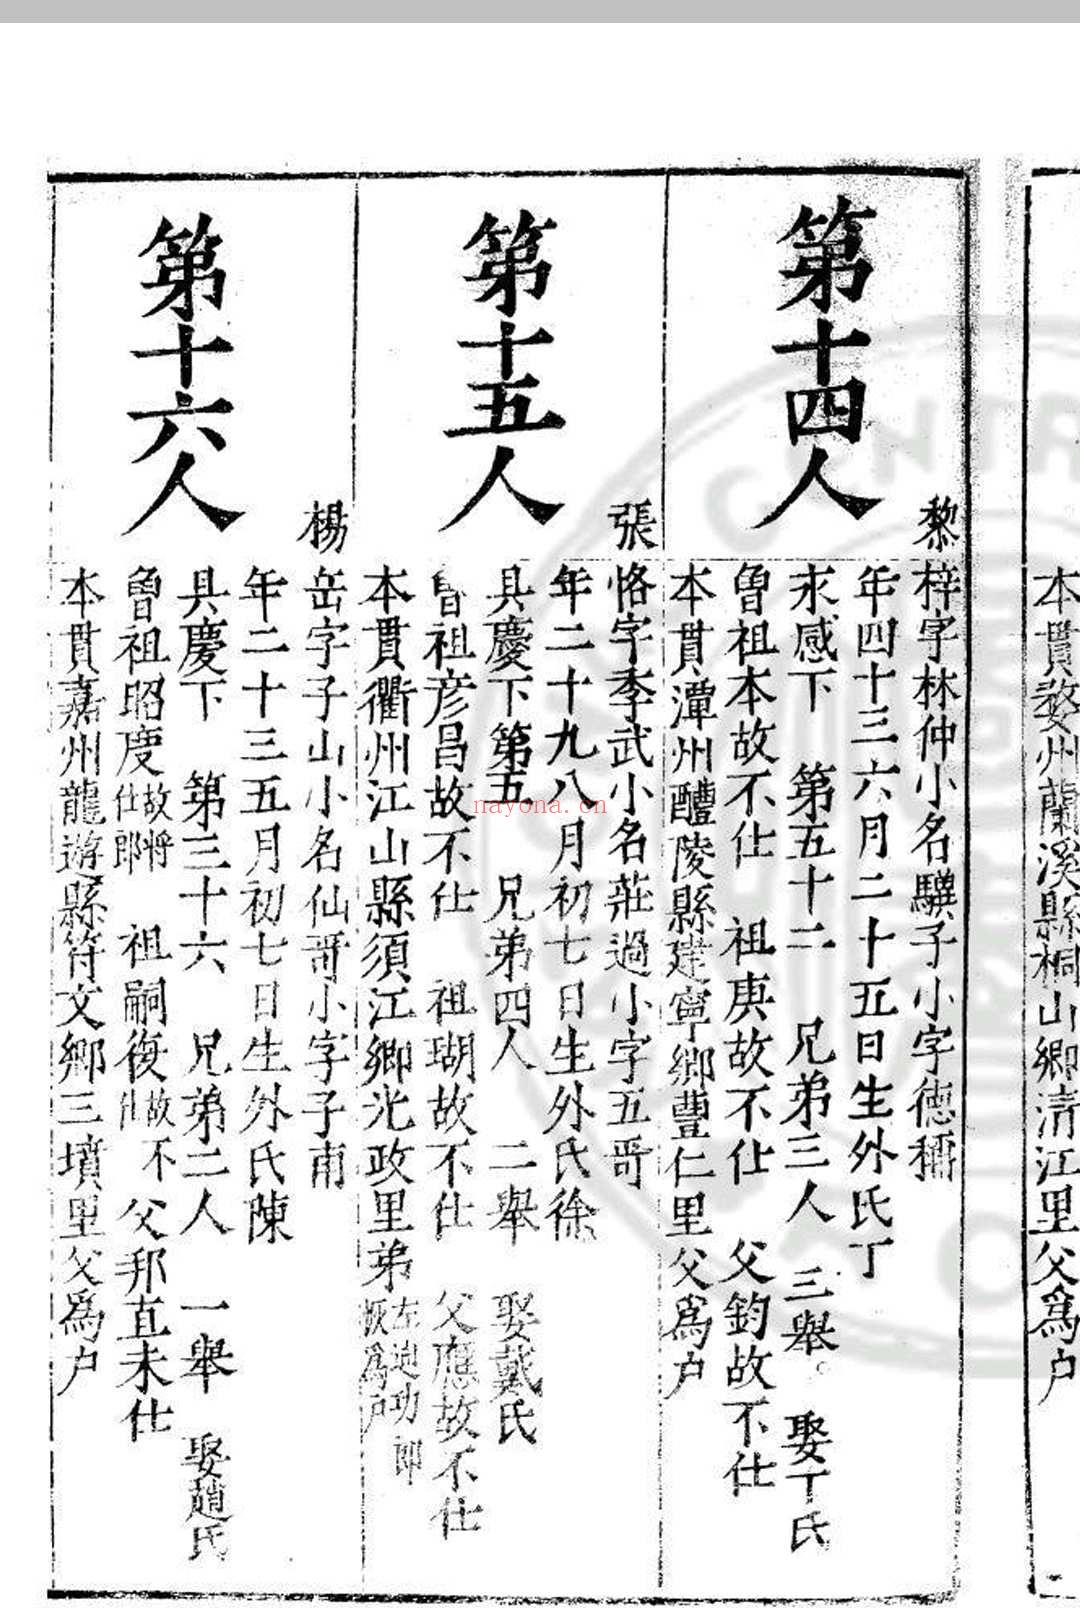 本貫婺州蘭溪縣桐山鄉清江里父爲户
第十四人
黎梓字林仲小名驥子小字德稱
年四十三六月二十五日生外氏丁
求感下 第五十二 兄弟三人 三舉 娶丁氏
曾祖本故不仕 祖庚故不仕 父鈞故不仕
本貫潭州醴陵縣建寧鄉豊仁里父爲户
第十五人
張恪字季武小名莊過小字五哥
年二十九八月初七日生外氏徐
具慶下第五 兄弟四人 二舉 娶戴氏
曾祖彦昌故不仕 祖瑚故不仕 父應故不仕
本貫衢州江山縣須江鄉光政里弟左迪功郎
恢爲户
第十六人
楊岳字子山小名仙哥小字子甫
年二十三五月初七日生外氏陳
具慶下 第三十六 兄弟二人 一舉 娶趙氏
曾祖昭度故將仕郎 祖嗣復故不仕 父邦直未仕
本貫嘉州龍遊縣符文鄉三墳里父爲户
nayona.cn